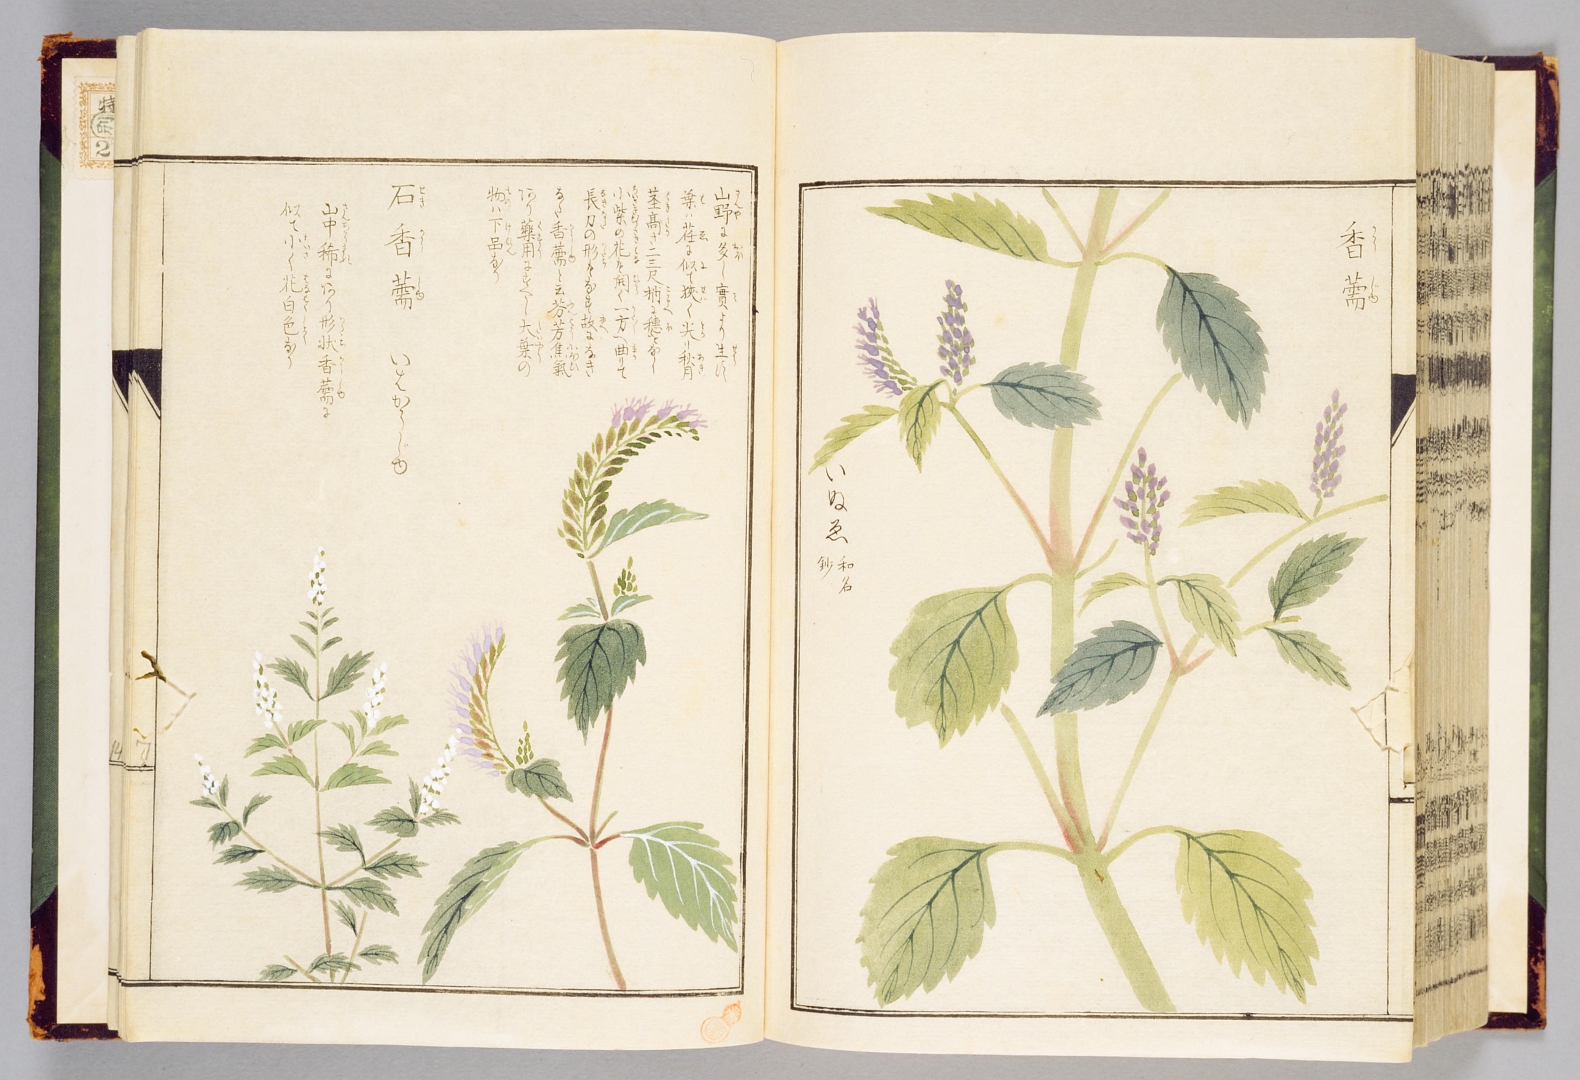 香薷
いぬゑ 和名鈔
山野に多し實より生ず
葉は荏に似て狭く光り秋月
茎高さ二三尺梢に穗をなし
小紫の花を開く一方へ曲りて
長刀の形をなす故になぎ
なた香薷と云芬芳焦氣
あり藥用にすべし大葉の
物は下品なり
石香薷 いはかうじゆ
山中稀にあり形状香薷に
似て小く花白色なり
特
2